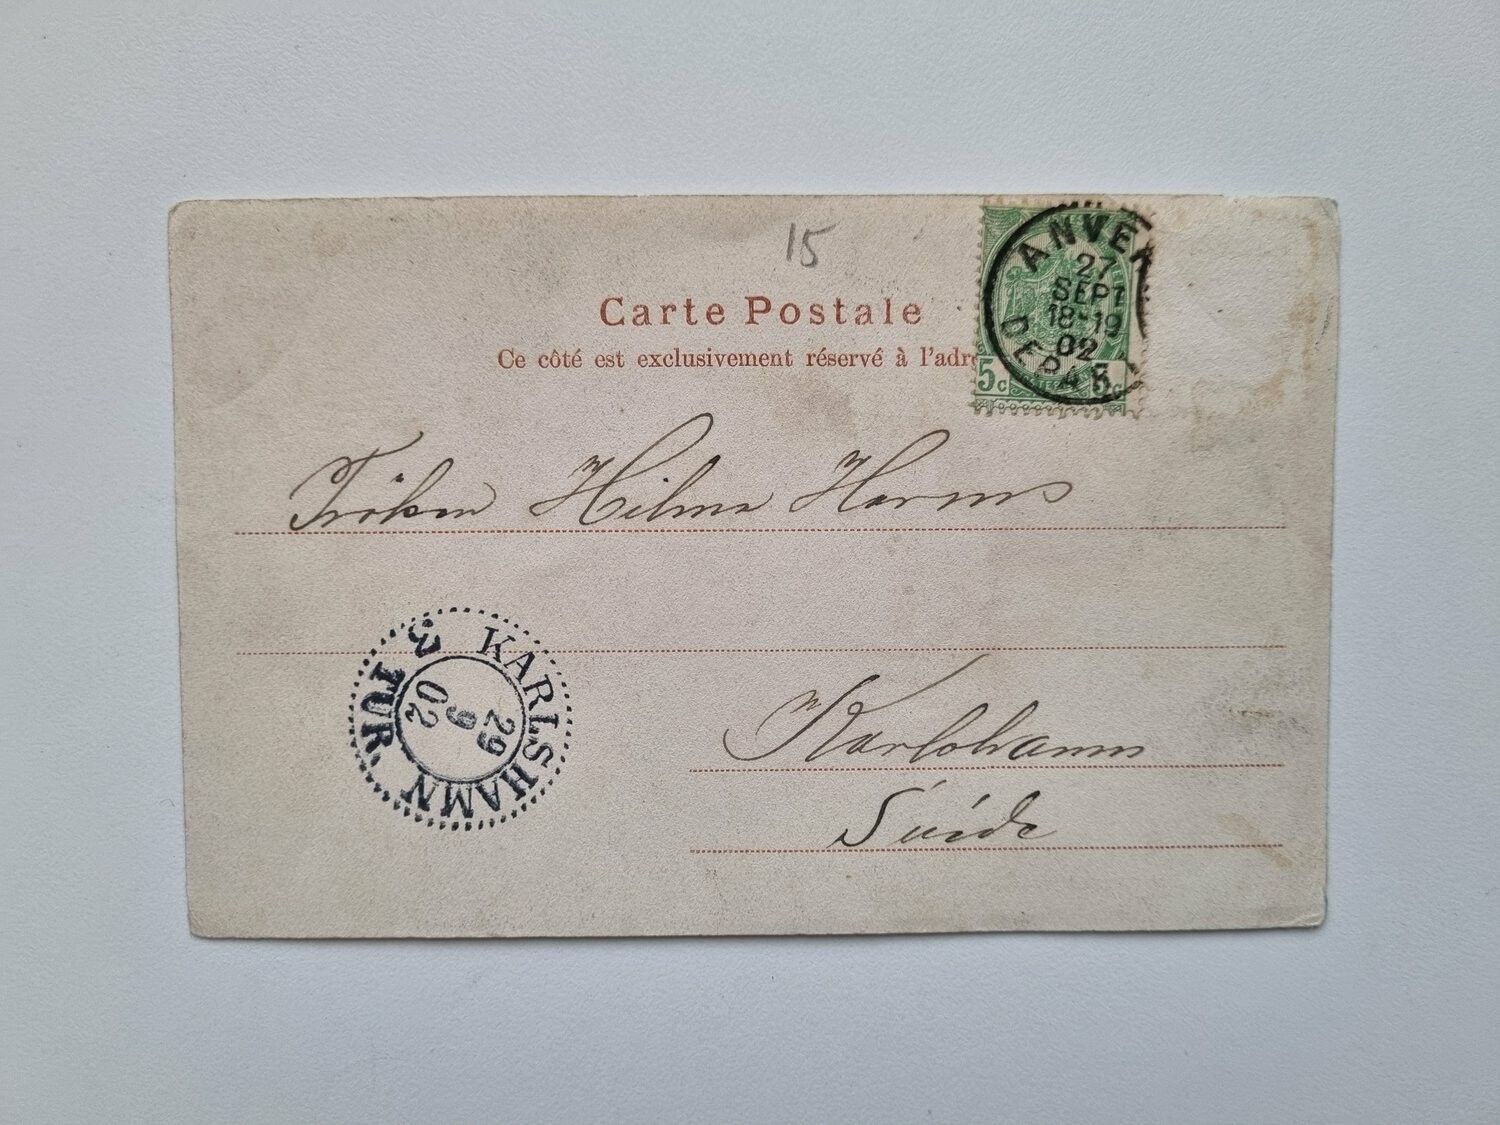 15
Carte Postale
Ce côté est exclusivement réservé à l'adre
ANVER
27
SEPT
18-19
02
DEPAR
5c 5c
Fröken Hilma Harms
KARLSHAMN
3 TUR
29
9
02
Karlshamn
Suéde